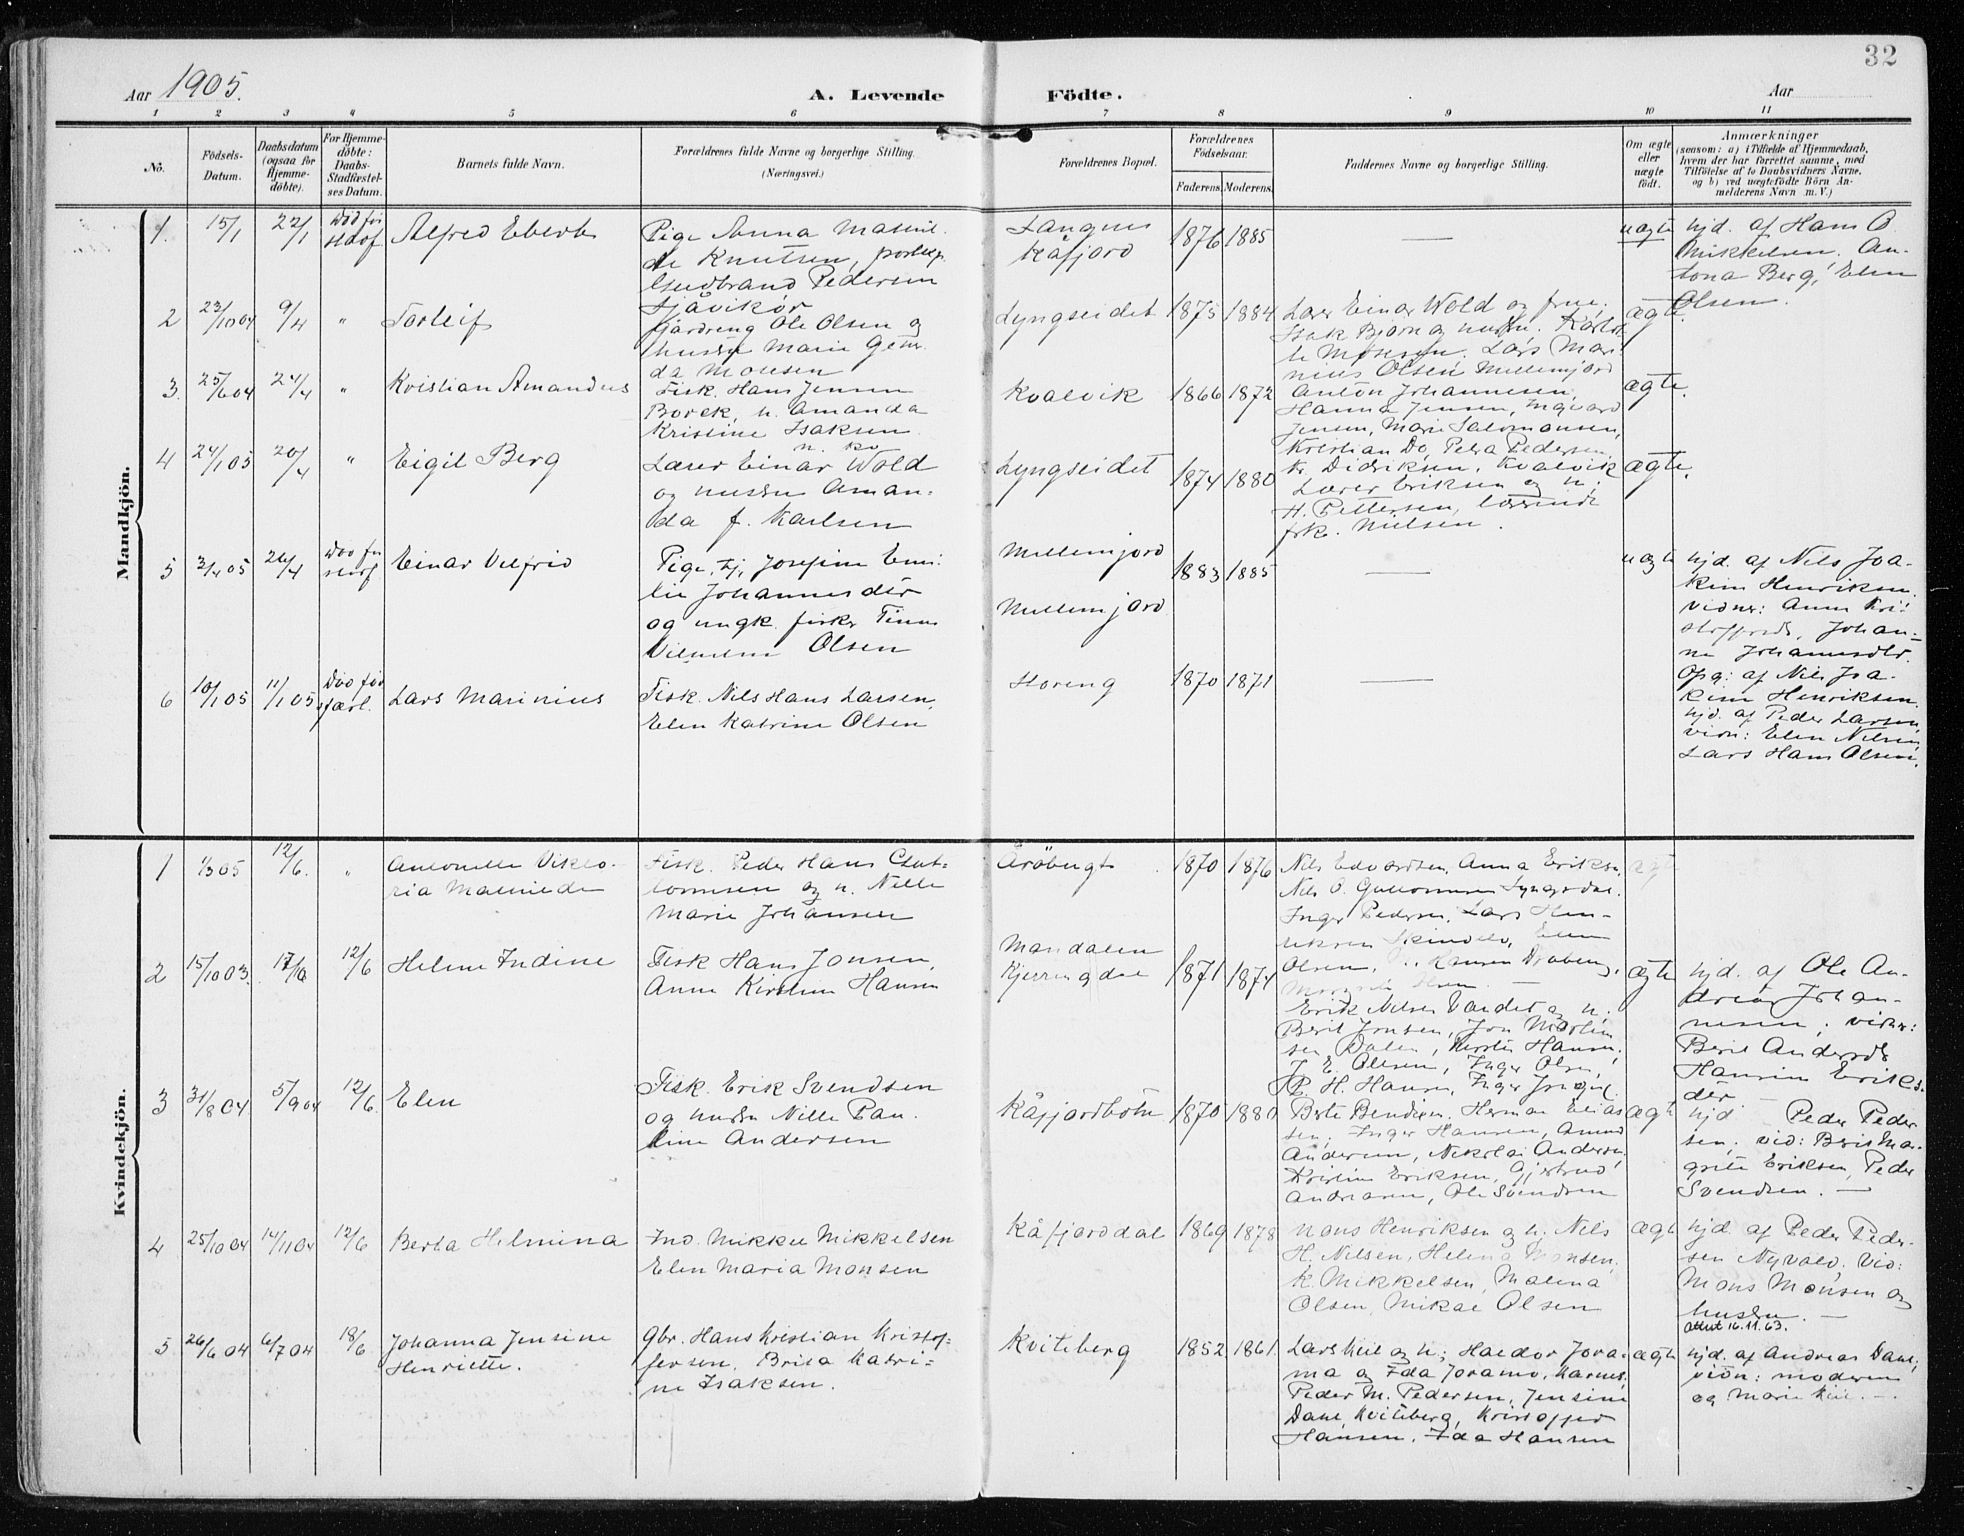 32
Aar 1905.
A. Levende Födte.
Aar
1 2 3 4 5 6 7 8 9 10 11
No.
Födsels-
Datum.
Daabsdatum
(ogsaa for
Hjemme-
döbte).
For Hjemme-
döbte:
Daabs-
Stadfæstel-
ses Datum.
Barnets fulde Navn.
Forældrenes fulde Navne og borgerlige Stilling.
(Næringsvei.)
Forældrenes Bopæl.
Forældrenes
Födselsaar.
Faderens. Moderens.
Faddernes Navne og borgerlige Stilling.
Om ægte
eller
uægte
födt.
Anmærkninger
(saasom: a) i Tilfælde af Hjemmedaab,
hvem der har forrettet samme, med
Tilföielse af to Daabsvidners Navne,
og b) ved uægtefödte Börn An-
melderens Navn m. V.)
Mandkjön.
1. 15/1 22/1 Död för
stadf.
Alfred Ebert
Pige Anna Matil-
de Knutsen,
Gudbrand Pedersen
Langnes
Kåfjord
1876 1885
—
uægte
hjd. af Hans O
Mikkelsen. An-
tona Berg, Elen
Olsen.
2 23/10 04 9/4 "
Torleif
Gårdreng Ole Olsen og
hustru Marie
da Monsen
Lyngseidet
1875 1884
Lærer Einar Wold og frue.
Isak Bjørn og hustru.
Mosesen. Lars Mari
nius Olsen Millemjord
ægte.
3. 25/6 04 24/4 "
Kristian Amandus
Fisk. Hans Jensen
Borch, h. Amanda
Kristine Isaksen
Kvalvik
1866 1872
Anton Johannesen,
Hanna Jensen, Ingvard
Jensen, Marie Salomonsen,
Kristian Do, Petra Pedersen,
Kr. Didriksen. Kvalvik
ægte.
4 24/1 05 20/4 "
Eigil Berg
Lærer Einar Wold
og hustru Aman-
da f. Karlsen
Lyngseidet
1874 1880
Lærer Eriksen og h.
H. Pettersen, lærerinde
frk. Nielsen.
ægte.
5 3/4 05 26/4 Död för
stadf.
Einar Vilfrid
Pige, Josefine Emi-
lie Johannesdtr
og ungk. fisker
Vilhelm Olsen
Millemjord
Millemjord
1883 1885
—
uægte
hjd. af Nils Joa-
kim Henriksen.
vidner: Anne Kri-
stoffersd., Johan-
ne Johannesdtr.
Opg: af Nils Joa-
kim Henriksen.
6 10/1 05 11/1 05 Död för
Lars Marinius
Fisk. Nils Hans Larsen,
Elen Katrine Olsen
Storeng
1870 1871
—
hjd. af Peder Larsen,
vidn: Elen Nilsen,
Lars Hans Olsen.
Kvindekjön.
1 1/3 05 12/6. "
Antonette Vikto-
ria Matilde
Fisk. Peder Hans
og h. Nille
Marie Johansen
Årøbugt
1870 1876
Nils Edvardsen, Anna Eriks.
Nils O.
Inger Peders. Lars Hen-
riksen
Olsen,
ægt
2 15/10 03. 17/10 12/6
Helene Indine
Fisk Hans Jonsen,
Anne Kirstine Hansen
Mandalen
Kjerringdal
1871 1874
Erik Nilsen Vandet og h.
Berit Jonsen, Jon Martin
sen Dalen, Kirstin Hansen,
J. E. Olsen, Inger Olsen,
P. H. Hansen, Inger
ægte
hjd. af Ole An-
dreas Johan-
nesen; vidner:
Berit Andersdtr
Hansine Eriks-
dtr
3 31/8 04 5/9 04 12/6.
Elen
Fisk. Erik Svendsen
og hustru Nille Pau-
line Andersen
Kåfjordbotn
1870 1880
Berte Bendigen. Herman Elias
sen, Inger Hansen, Amund
Andersen, Nikolai Andersen
Kristine Eriksen, Gjertrud
Andreasen, Ole Svendsen
ægt
hjd Peder Peder
sen, vid: Brit Ma-
grite Eriksen, Peder
Svendsen. —
4 25/10 04 14/11 04 12/6
Berta Helmina
Ind. Mikkel Mikkelsen
Elen Maria Monsen
Kåfjorddal
1869 1878
Mons Henriksen og h. Nils
H. Nilsen, Helena Monsen,
K. Mikkelsen, Malena
Olsen, Mikal Olsen
ægt
hjd. af Peder Peder-
sen Nyvold, vid:
Mons Monsen og
hustru. —
Attest 16.11.63.
5 26/6 04 6/7 04 18/6
Johanna Jensine
Henriette.
Gbr. Hans Kristian Kristof-
fersen. Brita Katri-
ne Isaksen.
Kviteberg
1852. 1861.
Lars Kiil og h; Haldor Jora-
ma og Ida Joramo, Karnes,
Peder M. Pedersen, Jensine
Dahl, Kviteberg, Kristoffer
Hansen. Ida Hansen
ægte
hjd. af Andreas Dahl,
vidn: moderen
og Marie Kiil. —